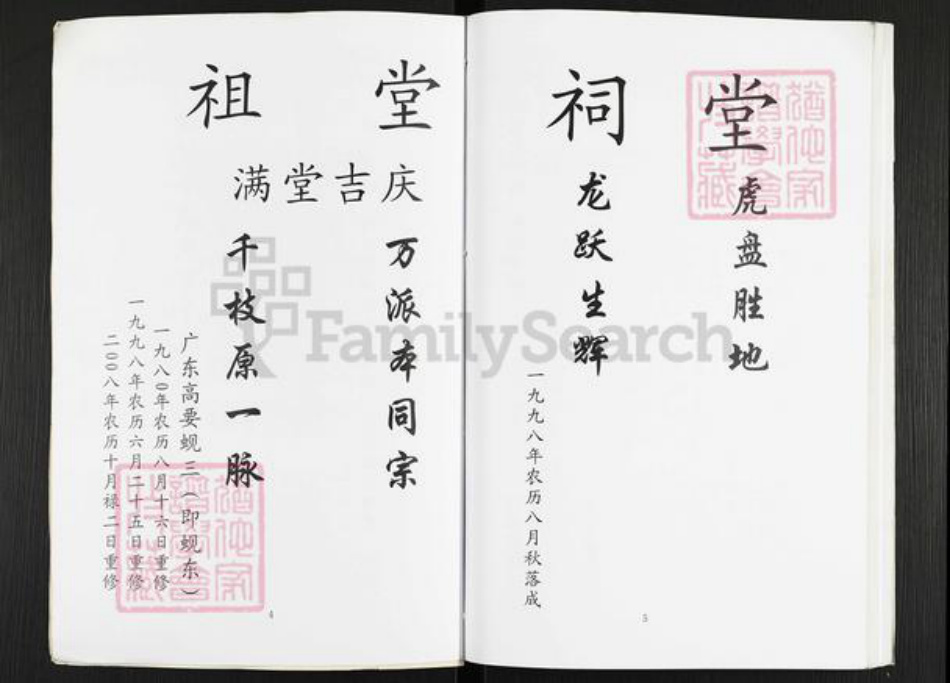 堂 祠
虎盘胜地
龙跃生辉
一九九八年农历八月秋落成
5
堂 祖
庆吉堂满
万派本同宗
千枝原一脉
广东高要蚬三（即蚬东）
一九八0年农历八月十六日重修
一九九八年农历六月二十五日重修
二00八年农历十月禄二日重修
4
FamilySearch